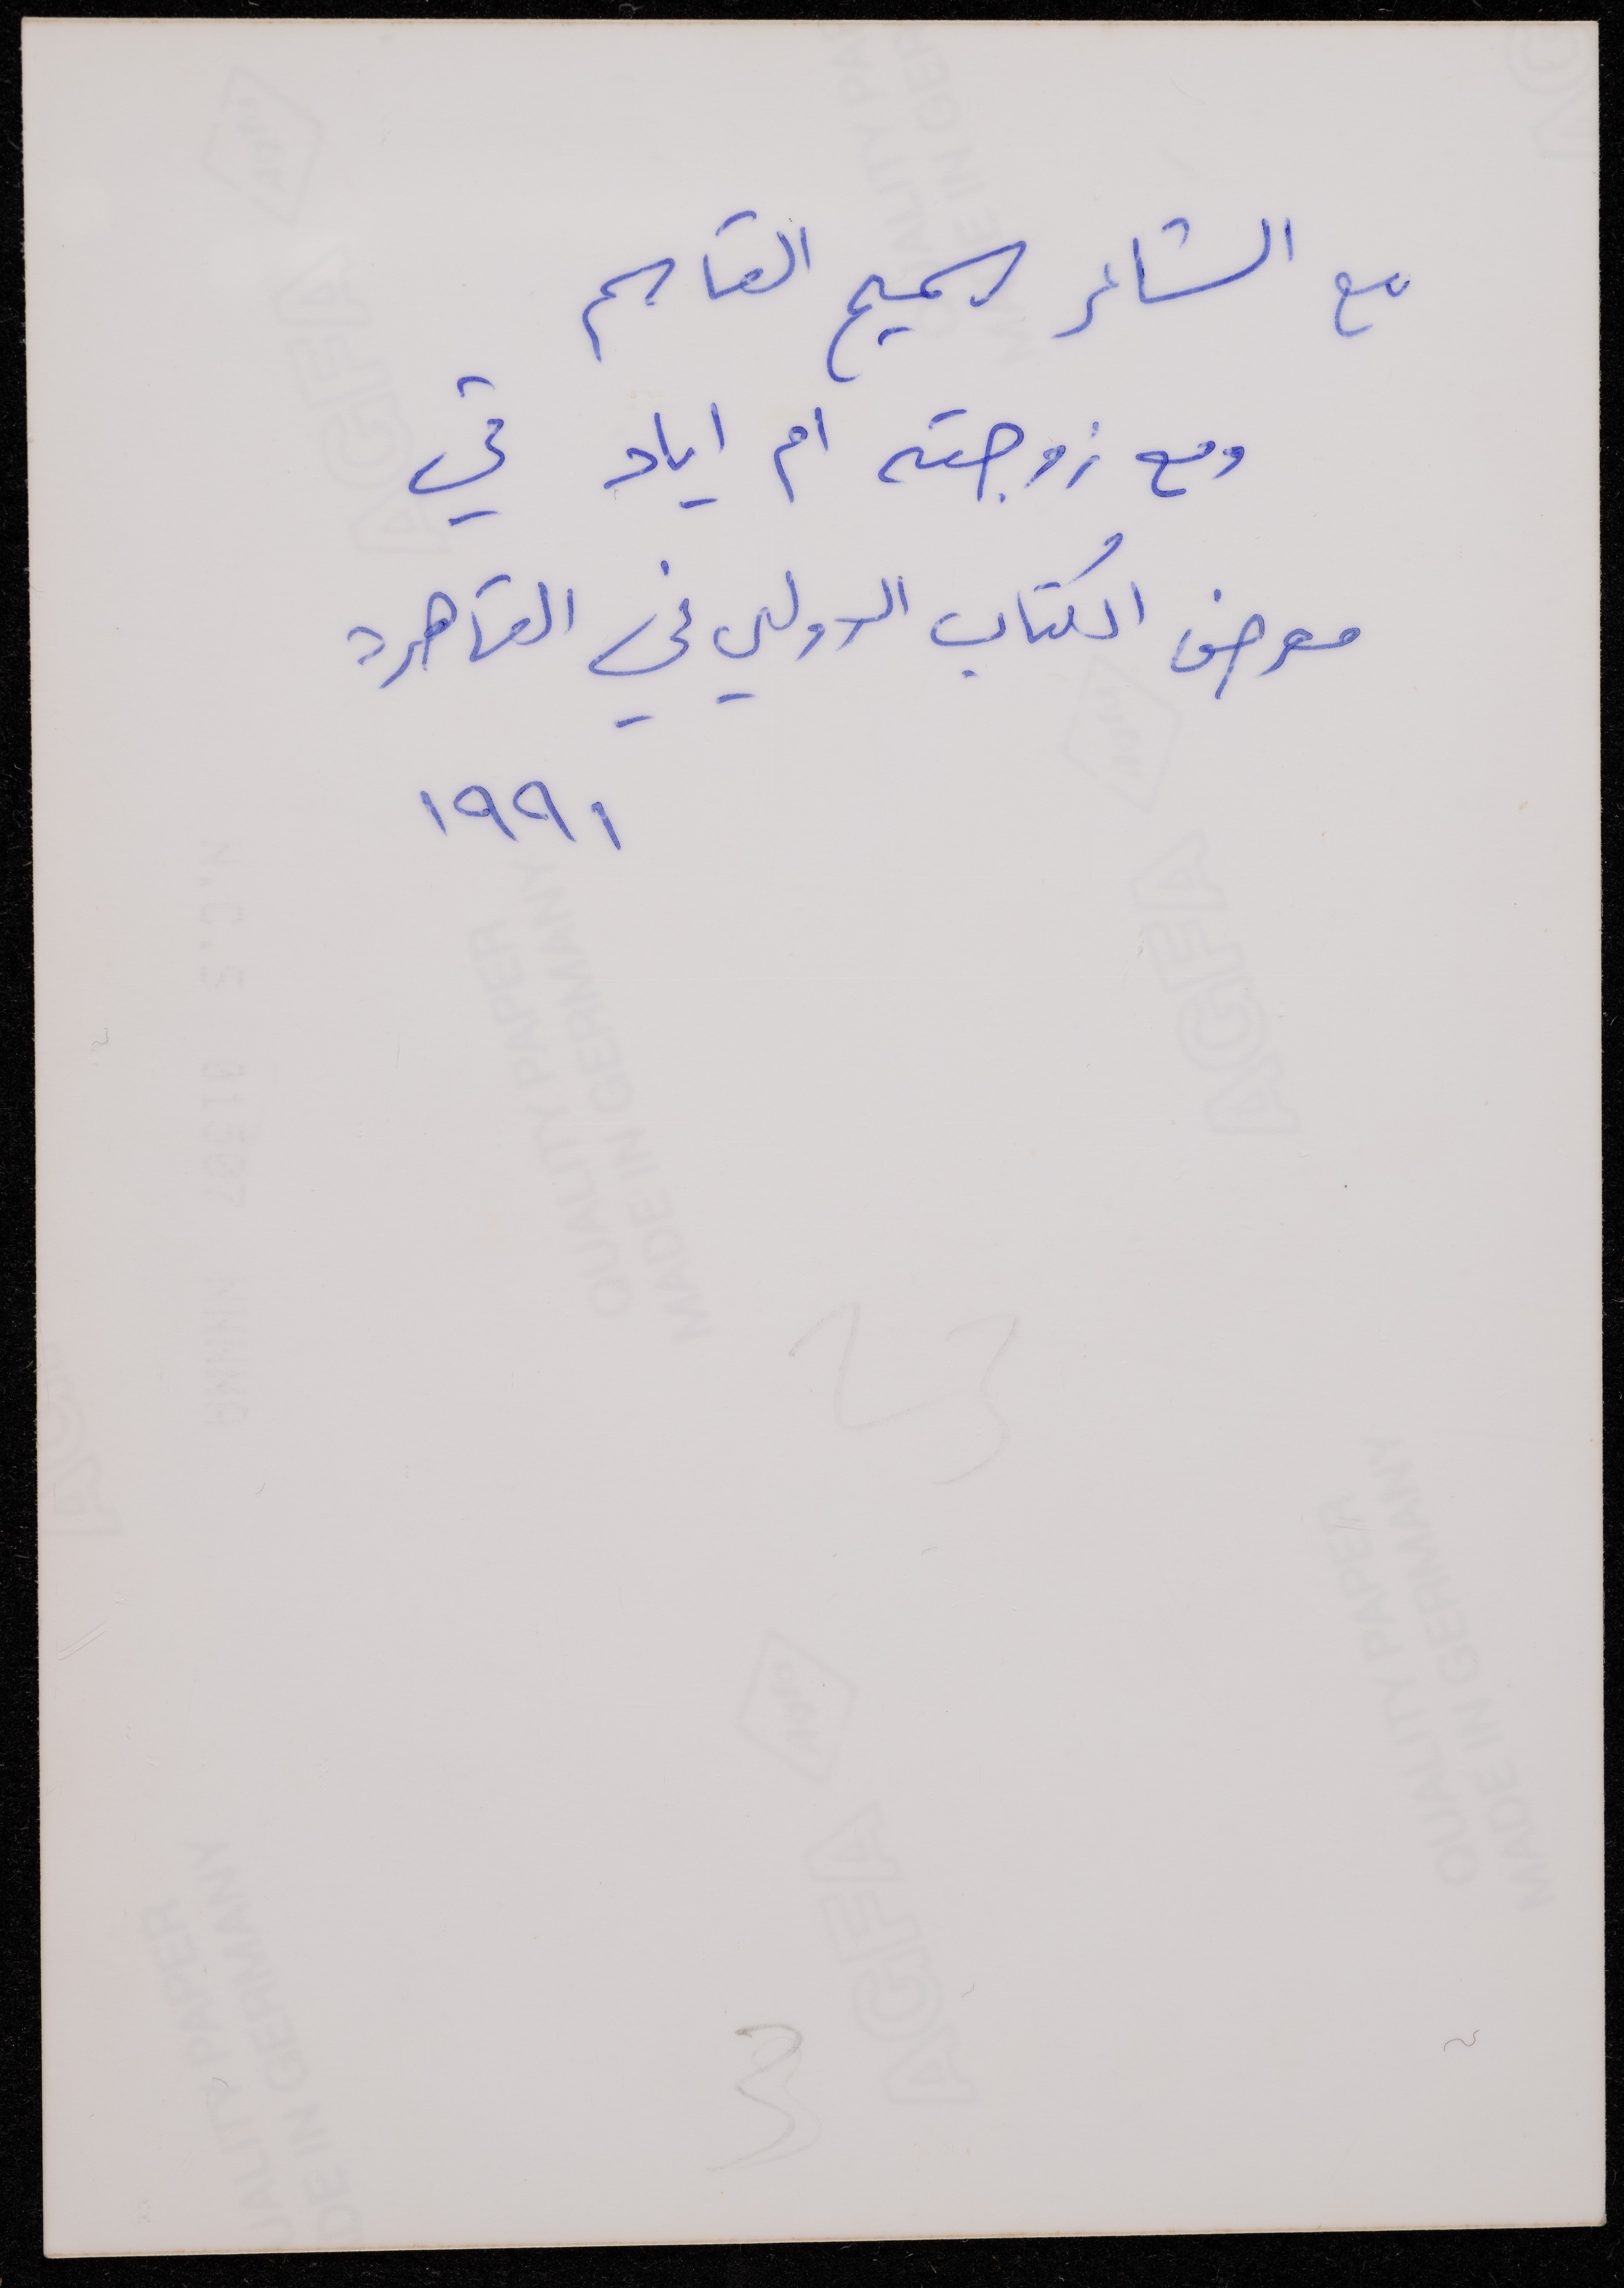 مع الشاعر سميح القاسم
ومع زوجته ام اياد في
معرض الكتاب الدولي في القاهرة
١٩٩١
AGFA
QUALITY PAPER
MADE IN GERMANY